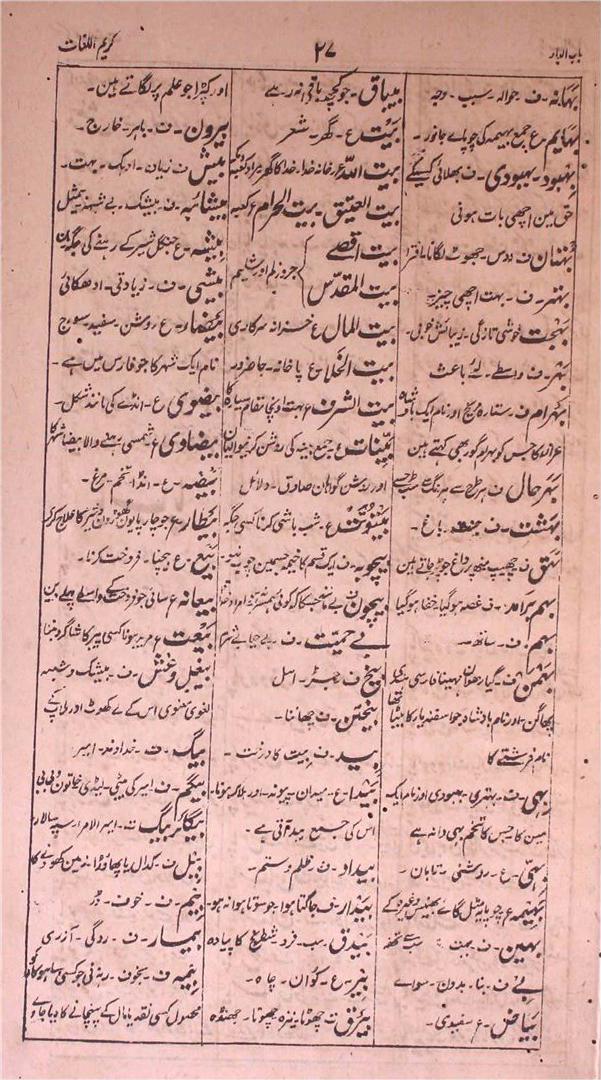 باب الباء
۲۷
کریم اللغات
بہانہ۔ ف۔ حوالہ۔ سبب۔ وجہ
بہایم۔ ع جمع بہیمہ کی چوپائے جانور۔
بہبود۔ بہبودی۔ ف۔ بھلائی کسیکے
حق مین اچھی بات ہونی
بہتان جھوٹ لگانا۔ افترا
بہتر۔ ف۔ بہت اچھی چیز۔
بہجت خوشی تازگی۔ زیبائش خوبی۔
بہر۔ ف واسطے۔ لئے باعث
بہرام ف ستارہ مریخ اور نام ایک بادشاہ
کا جس کو بہرام گور بھی کہتے ہین
بہرحال ف ہر طرح سے ہر رنگ سے
بہشت۔ ف۔ جنت۔ باغ۔
بہق ف چھیپ
بہم برآمد۔ ف غصہ ہوگیا۔ خفا ہوگیا
بہم۔ ف۔ ساتھ۔
بہمن۔ ف۔ گیارھوان مہینا فارسی
پھاگن۔ اور نام بادشاہ جو اسفندیار کا بیٹا تھا
نام فرشتے کا
بہی۔ ف۔ بہتری۔ بہبودی اور نام ایک
کا جس کا تخم بہی دانہ ہے
بہی۔ ع۔ روشنی۔ تابان۔
بہیمہ ع چوپایہ مثل گائے بھینس وغیرہ کے
بہین۔ ف۔
بے ف۔ بنا۔ بدون۔ سوائے
بیاض۔ ع سفیدی۔
بیباق۔ جو کچھ باقی نہ رہے
بیت ع۔ گھر۔ شعر
بیت اللہ خانہ خدا۔ خدا کا گھر
بیت العتیق۔ بیت الحرام ع کعبہ
بیت اقصے
بیت المقدس
بیت المال ع خزانہ سرکاری
بیت الخلا۔ ع پاخانہ۔ جاضرور
بیت الشرف ع بہت اونچا مقام
بینات ع جمع بینہ کی روشن کرنیوالیان
اور روشن گواہان صادق۔ دلائل
بیتوتت ع۔ شب باشی کرنا کسی جگہ
بیچوبہ۔ ف ایک قسم کا خیمہ جسمین چوب نہو
بیچون
بے حمیت۔ ف۔ بے حیا بے شرم
بیخ ف جڑ۔ اسل
بیختن۔ ف چھاننا۔
بید۔ ف بیت کا درخت۔
بیدا۔ ع۔ میدان۔ اور ہلاک ہونا۔
اس کی جمع بید آتی ہے۔
بیداد۔ ف۔ ظلم و ستم۔
بیدار۔ ف جاگتا ہوا جو سوتا ہوا نہ ہو۔
بیدق۔ شطرنج کا پیادہ
بیر۔ ع۔ کوان۔ چاہ۔
بیرق ت چھوٹا نیزہ چھوٹا۔ جھنڈا
اور کپڑا جو علم پر لگاتے ہین۔
بیرون۔ ف۔ باہر۔ خارج۔
بیش ف زیان۔ ادہک۔ بہت۔
بیشائبہ۔ ف۔ بیشک۔ بے شبہہ
بیشہ۔ ع جنگل شیر کے رہنے کی جگہ
بیشی۔ ف۔ زیادتی۔ ادھکائی
بیضا۔ ع۔ روشن۔ سفید۔ سورج
نام ایک شہر کا جو فارس مین ہے۔
بیضوی ع۔ انڈے کی مانند شکل۔
بیضاوی ع
بیضہ۔ ع۔ انڈا۔ تخم۔ مرغ۔
بیطار۔ ع جو چارپایون کا علاج کرے
بیع۔ ع بیچنا۔ فروخت کرنا۔
بیعانہ
بیعت ع مرید ہونا کسی پیر کا شاگرد بننا
بیغل و غش۔ ف۔ بیشک و شبہہ
لغوی معنوی اس کے بے کھوٹ اور ملاپ کے
بیگ۔ ت۔ خداوند۔ امیر
بیگم۔ ف۔ امیر کی بیٹی۔ لیڈی خاتون۔ بی بی
بیگلر بیگ ت۔ امیر الامرا۔ سپہ سالار۔
بیل ف۔ کدال یا پھاوڑا۔ زمین کھودنے کا
بیم۔ ف۔ خوف۔ ڈر
بیمار۔ ف۔ روگی۔ آزری
بیمہ ف۔ بے خوف۔
محصول کسی نقد یا مال کے پہنچانے کا دیا جاوے